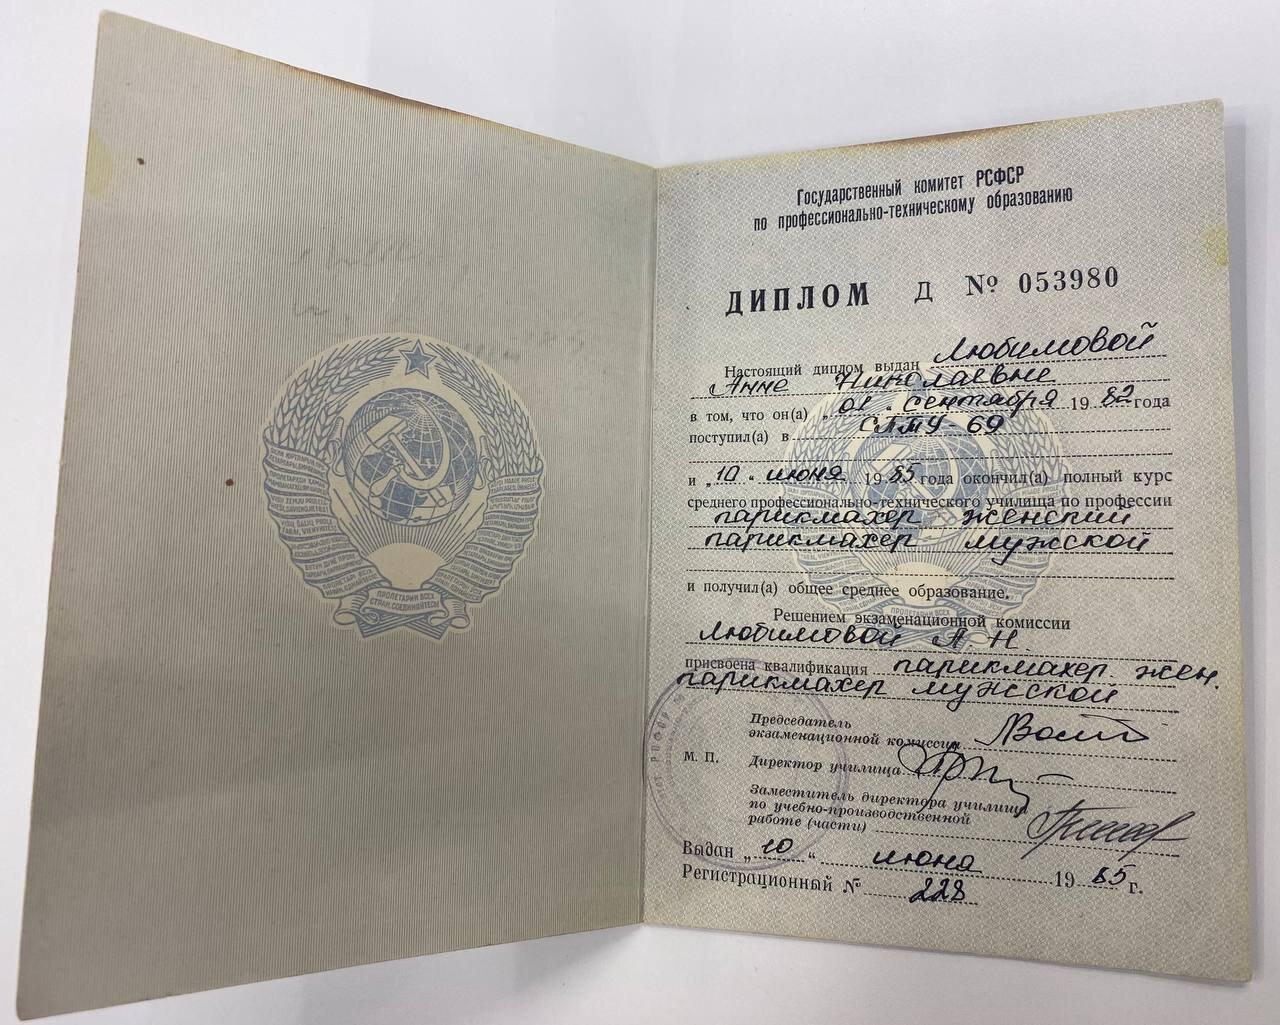 ПРОЛЕТАРИИ ВСЕХ
СТРАН, СОЕДИНЯЙТЕСЬ!
Государственный комитет РСФСР
по профессионально-техническому образованию
ДИПЛОМ Д № 053980
Настоящий диплом выдан Любимовой
Анне Николаевне
в том, что он(а) „01 „ сентября 1982 года
поступил(а) в СПТУ-69
и „10 „ июня 1985 года окончил(а) полный курс
среднего профессионально-технического училища по профессии
парикмахер женский
парикмахер мужской
и получил(а) общее среднее образование.
Решением экзаменационной комиссии
Любимовой А. Н.
присвоена квалификация парикмахер. жен.
парикмахер мужской
Председатель
экзаменационной комиссии
М. П. Директор училища
Заместитель директора училища
по учебно-производственной
работе (части)
Выдан „10“ июня 1985 г.
Регистрационный № 228
ПРОЛЕТАРИИ ВСЕХ
СТРАН, СОЕДИНЯЙТЕСЬ!